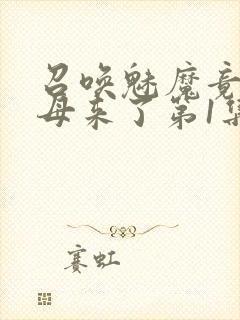 召唤魅魔竟
母来了第1集
赛虹